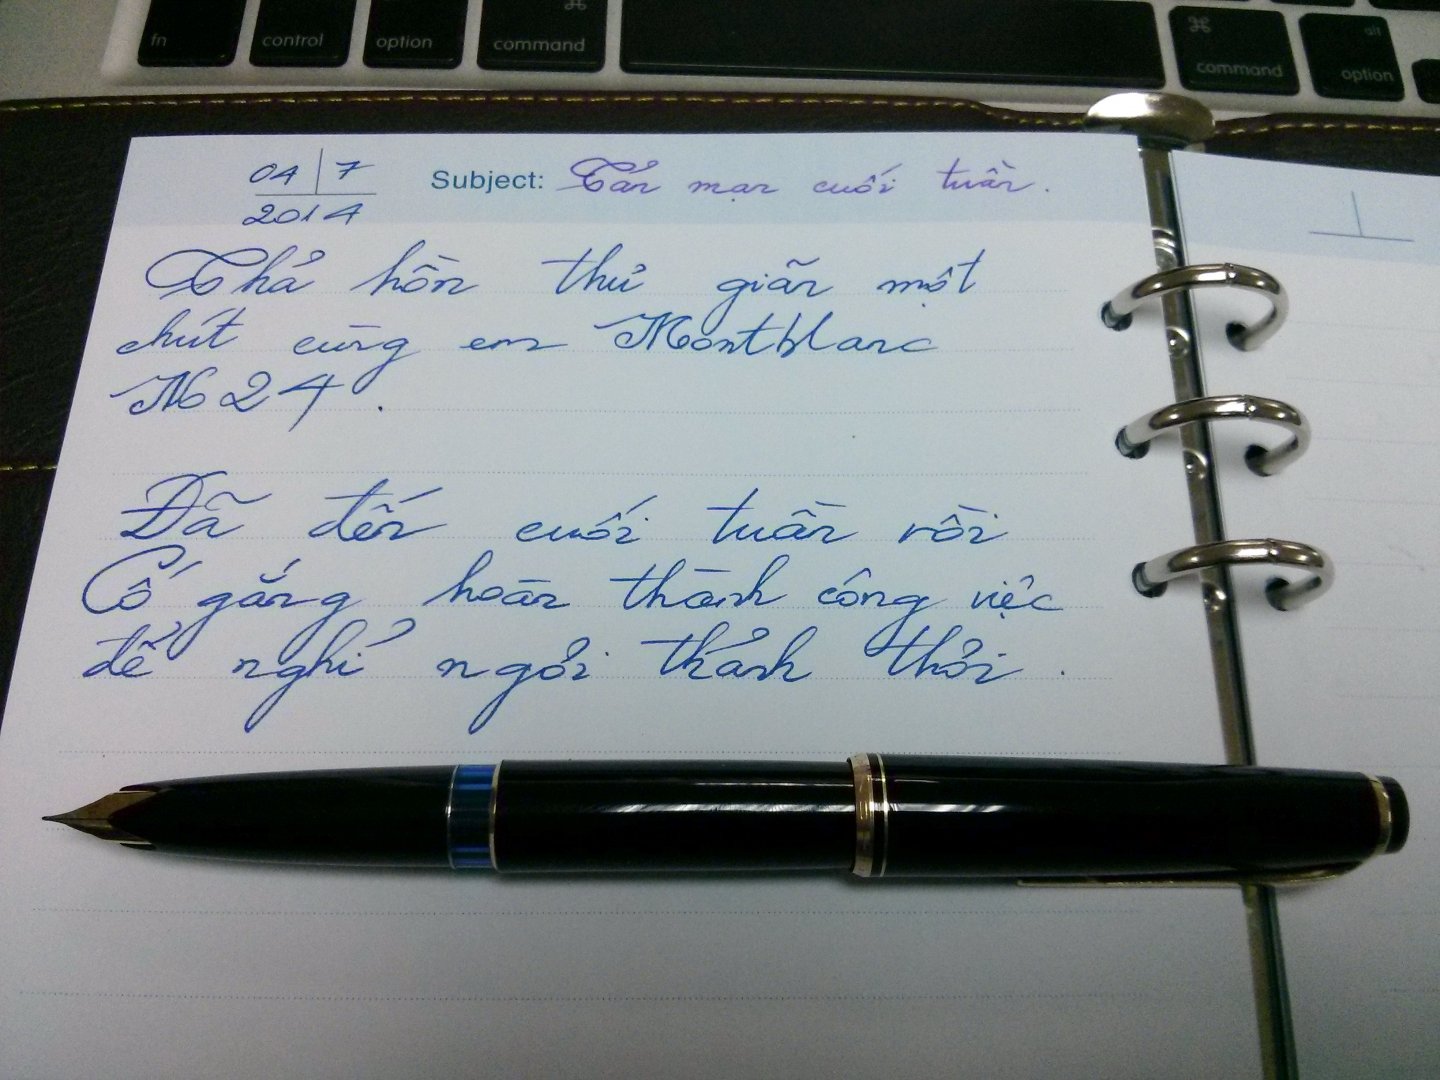 fn control option ⌘ command ⌘ command alt option
04 7
2014
Subject: Tản mạn cuối tuần.
Thả hồn thư giãn một
chút cùng em Montblanc
No 24.
Đã đến cuối tuần rồi
Cố gắng hoàn thành công việc
để nghỉ ngơi thảnh thơi.